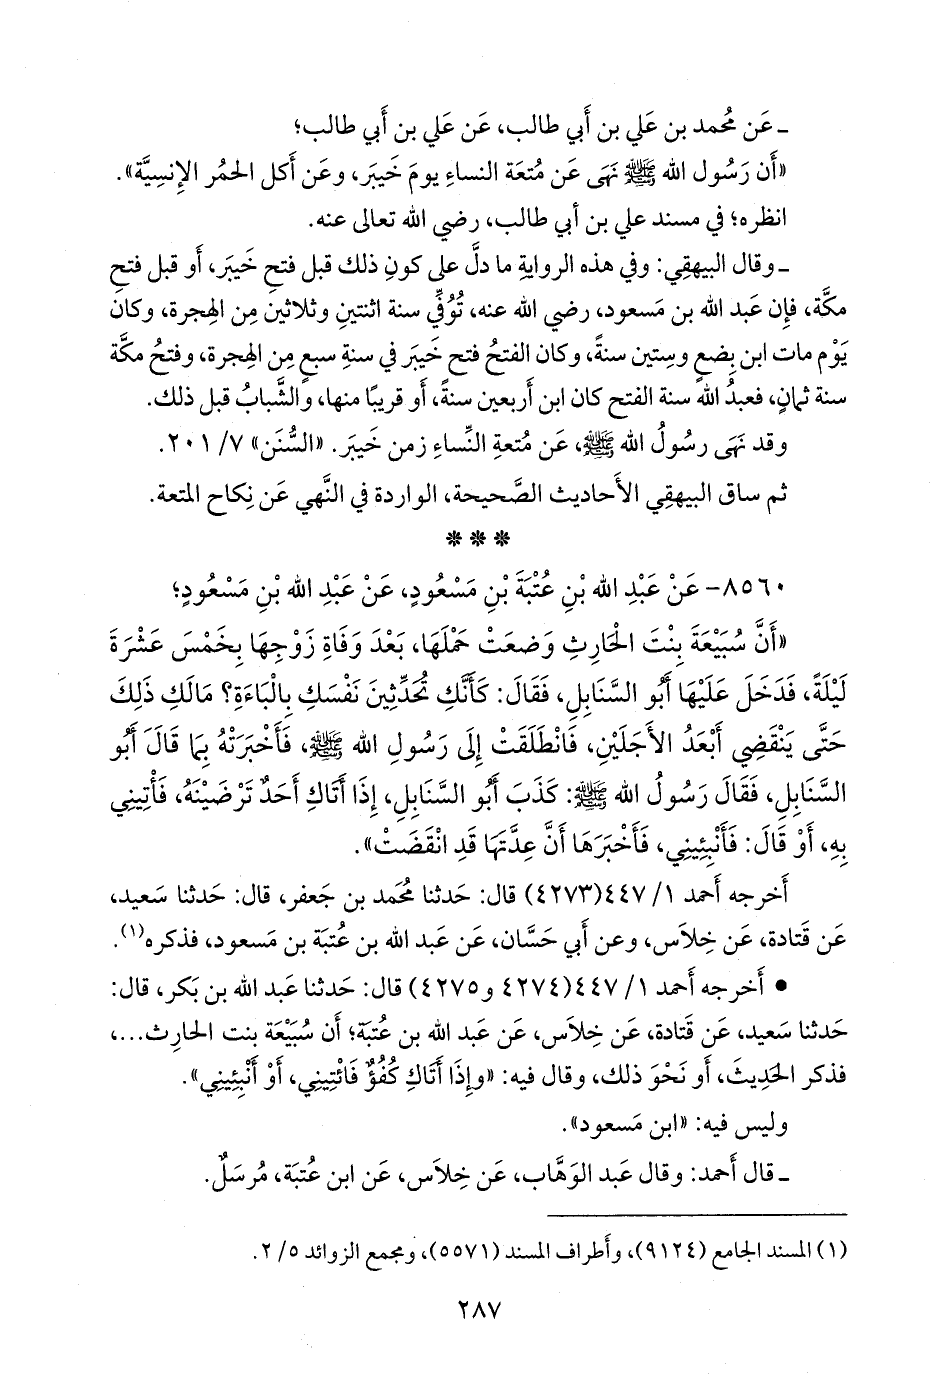 ـ عَن مُحمد بن عَلي بن أَبي طالب، عَن عَلي بن أَبي طالب؛
«أَن رَسُول الله ﷺ نَهَى عَن مُتعَة النساءِ يومَ خَيبَر، وعَن أَكل الحمُر الإِنسيَّة».
انظره؛ في مسند علي بن أبي طالب، رضي الله تعالى عنه.
ـ وقال البيهقِي: وفي هذه الروايةِ ما دلَّ على كونِ ذلك قبل فتحِ خَيبَر، أَو قبل فتحِ
مكَّة، فإِن عَبد الله بن مَسعود، رضي الله عنه، تُوُفِّي سنة اثنتينِ وثلاثينِ مِن الهِجرة، وكان
يَوْم مات ابن بِضعٍ وسِتين سنةً، وكان الفتحُ فتح خَيبَر في سنةِ سبعٍ مِن الهِجرة، وفتحُ مكَّة
سنة ثمانٍ، فعبدُ الله سنة الفتح كان ابن أَربعين سنةً، أَو قريبًا منها، والشَّبابُ قبل ذلك.
وقد نهَى رسُولُ الله ﷺ، عَن مُتعةِ النِّساءِ زمن خَيبَر. «السُّنَن» ٧/ ٢٠١.
ثم ساق البيهقِي الأَحاديث الصَّحيحة، الواردة في النَّهي عَن نِكاح المتعة.
* * *
٨٥٦٠- عَنْ عَبْدِ الله بْنِ عُتْبَةَ بْنِ مَسْعُودٍ، عَنْ عَبْدِ الله بْنِ مَسْعُودٍ؛
«أَنَّ سُبَيْعَةَ بِنْتَ الْحَارِثِ وَضعَتْ حَمْلَهَا، بَعْدَ وَفَاةِ زَوْجِهَا بِخَمْسَ عَشْرَةَ
لَيْلَةً، فَدَخَلَ عَلَيْهَا أَبُو السَّنَابِلِ، فَقَالَ: كَأَنَّكِ تُحَدِّثِينَ نَفْسَكِ بِالْبَاءَةِ؟ مَالَكِ ذَلِكَ
حَتَّى يَنْقَضِيَ أَبْعَدُ الأَجَلَيْنِ، فَانْطَلَقَتْ إِلَى رَسُولِ الله ﷺ، فَأَخْبَرَتْهُ بِمَا قَالَ أَبُو
السَّنَابِلِ، فَقَالَ رَسُولُ الله ﷺ: كَذَبَ أَبُو السَّنَابِلِ، إِذَا أَتَاكِ أَحَدٌ تَرْضَيْنَهُ، فَأْتِينِي
بِهِ، أَوْ قَالَ: فَأَنْبِئِينِي، فَأَخْبَرَهَا أَنَّ عِدَّتَهَا قَدِ انْقَضَتْ».
أَخرجه أَحمد ١/ ٤٤٧(٤٢٧٣) قال: حَدثنا مُحمَد بن جَعفر، قال: حَدثنا سَعيد،
عَن قَتادة، عَن خِلاَس، وعن أَبي حَسَّان، عَن عَبد الله بن عُتبَة بن مَسعود، فذكره(١).
• أَخرجه أَحمد ١/ ٤٤٧(٤٢٧٤ و٤٢٧٥) قال: حَدثنا عَبد الله بن بَكر، قال:
حَدثنا سَعيد، عَن قَتادة، عَن خِلاَس، عَن عَبد الله بن عُتبَة؛ أَن سُبَيْعَة بنت الحارِث...،
فذكر الحَدِيثَ، أَو نَحْوَ ذلك، وقال فيه: «وإِذَا أَتَاكِ كُفُؤٌ فَائْتِينِي، أَوْ أَنْبِئِينِي».
وليس فيه: «ابن مَسعود».
ـ قال أَحمد: وقال عَبد الوَهَّاب، عَن خِلاَس، عَن ابن عُتبَة، مُرسَلٌ.
(١) المسند الجامع (٩١٢٤)، وأَطراف المسند (٥٥٧١)، ومجمع الزوائد ٥/ ٢.
٢٨٧